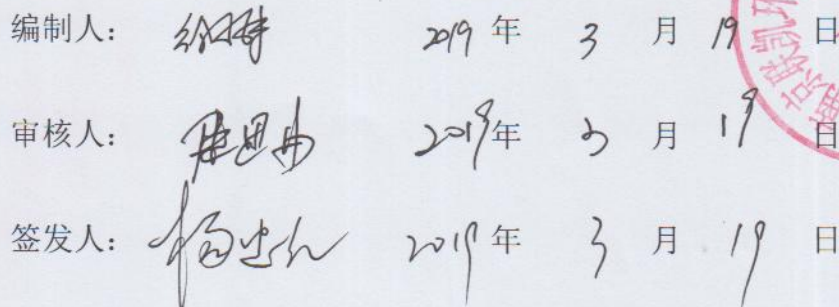 编制人： 2019 年 3 月 19 日
审核人： 2019 年 3 月 19 日
签发人： 2019 年 3 月 19 日